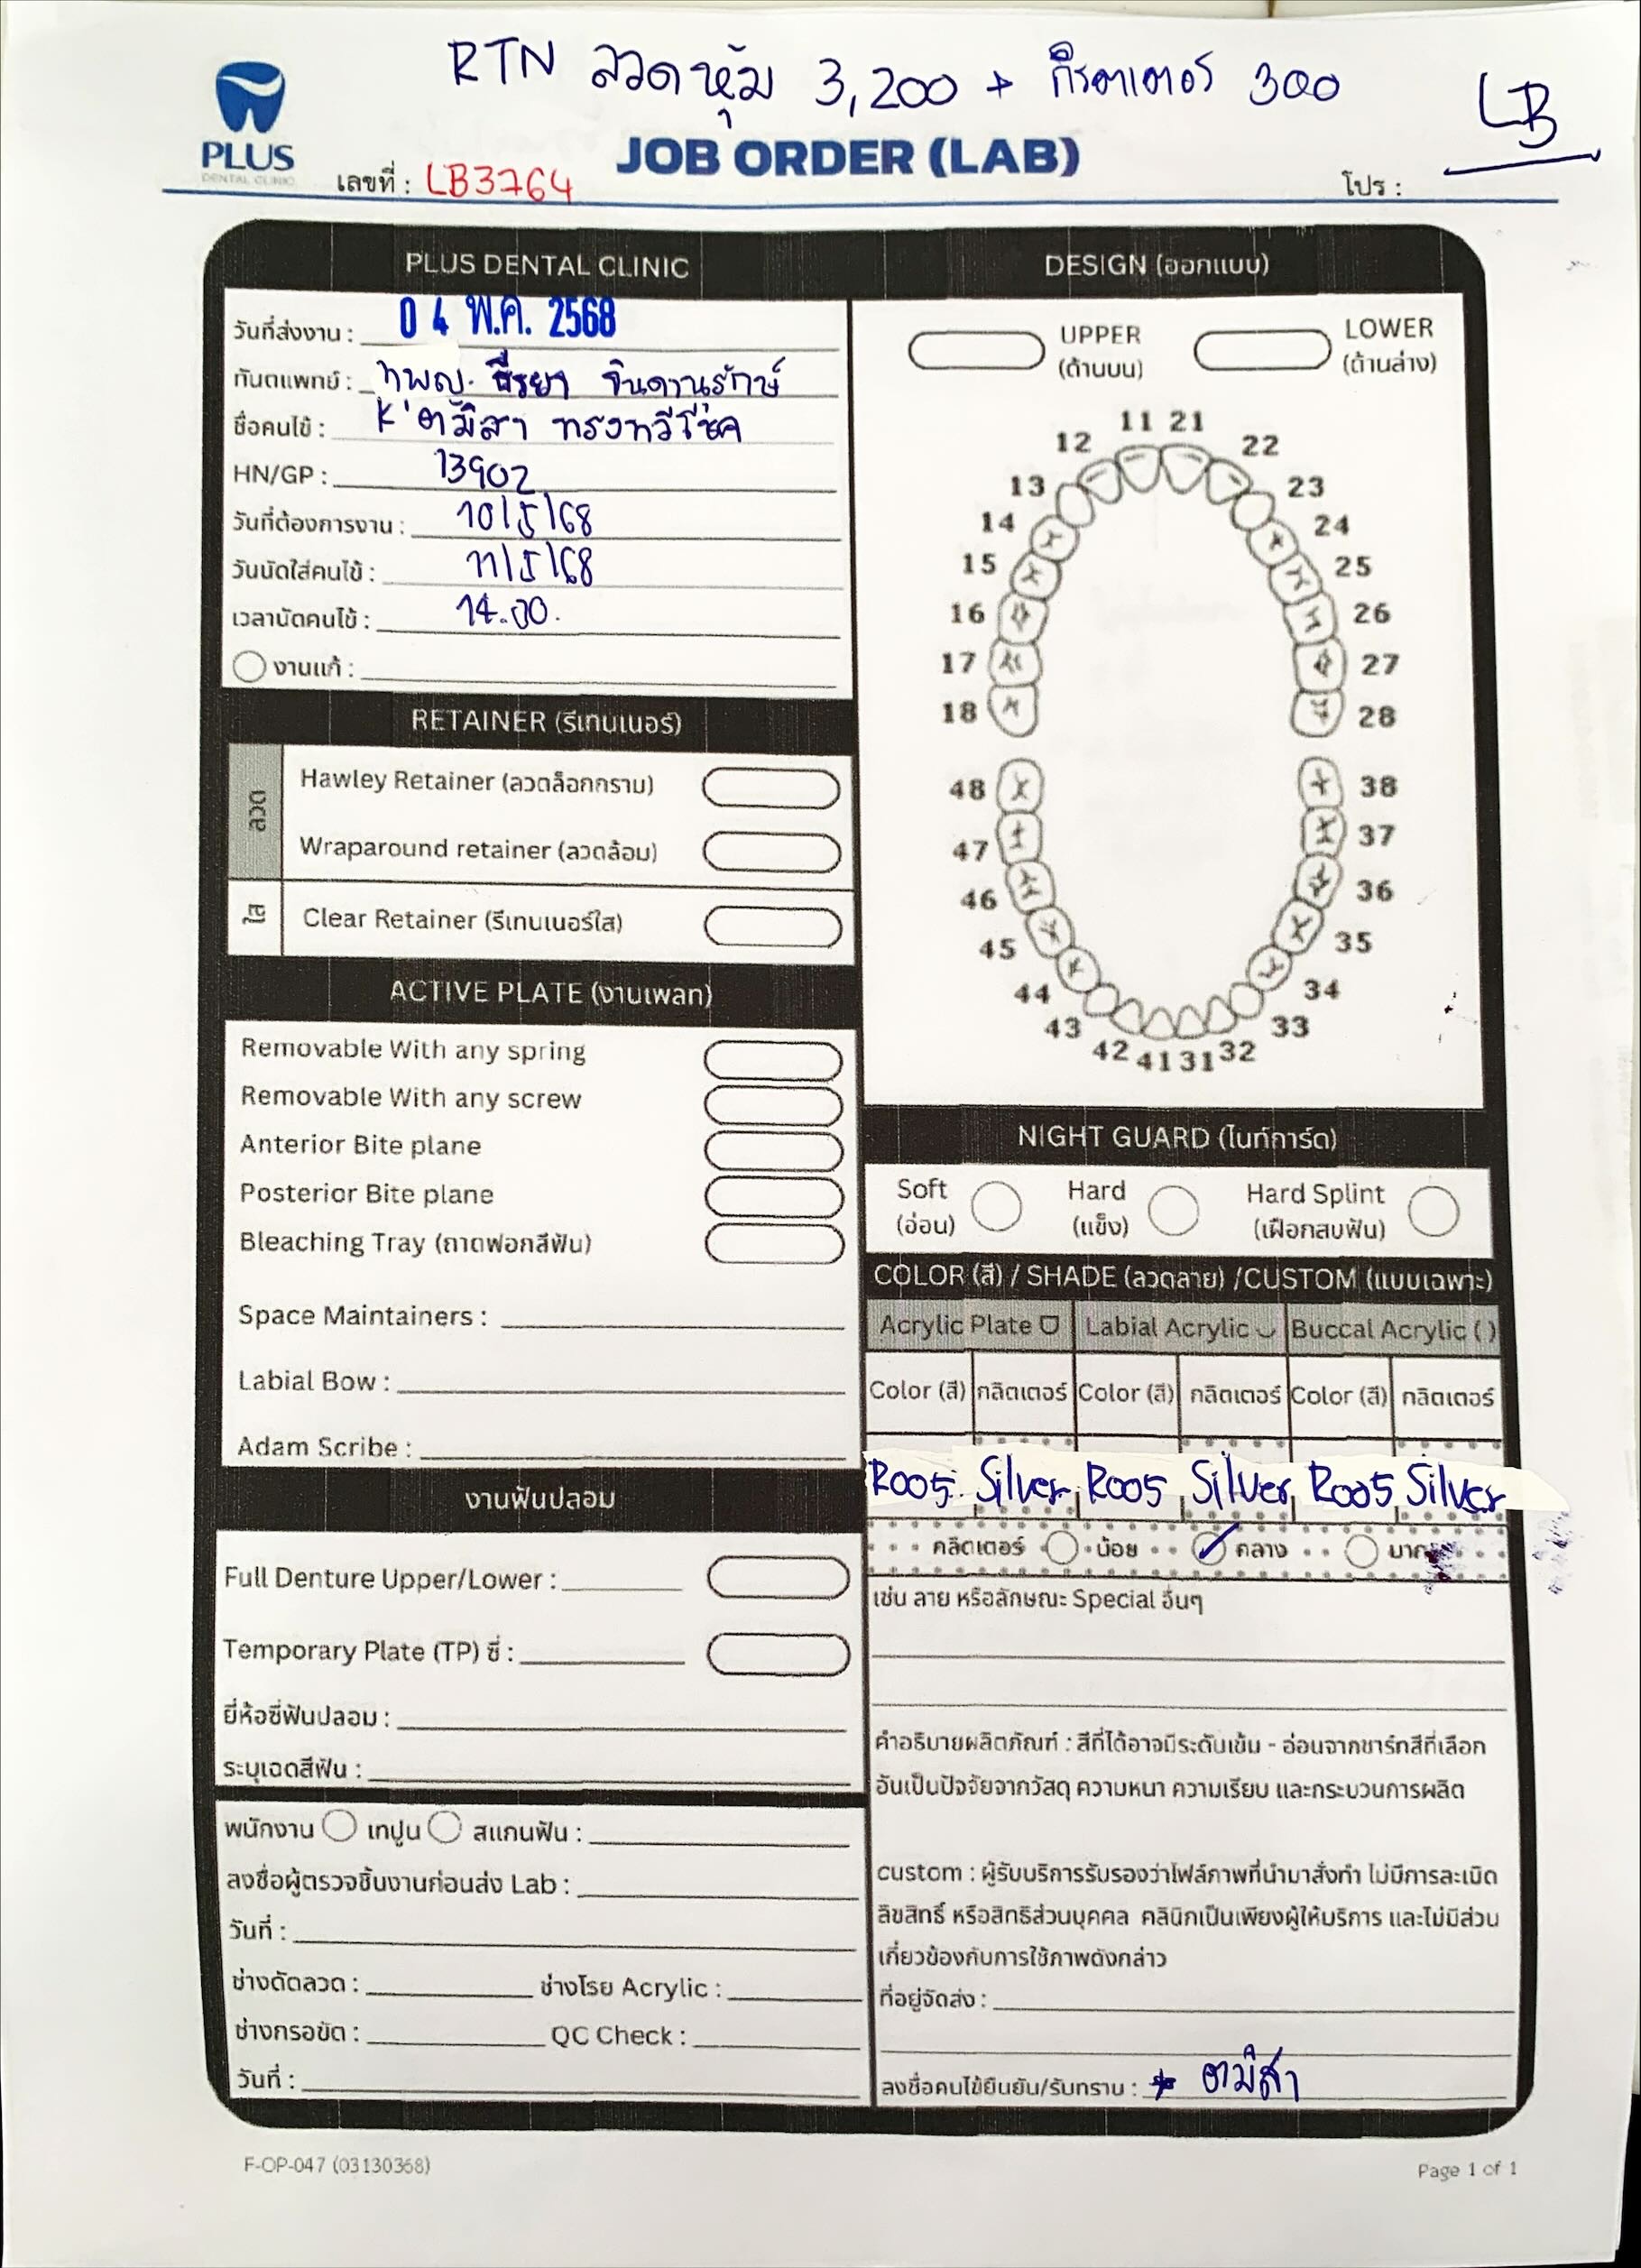 RTN ลวดหุ้ม 3,200 + กีรตเตอร์ 300
LB
PLUS
DENTAL CLINIC
เลขที่ : LB3764
JOB ORDER (LAB)
โปร :
PLUS DENTAL CLINIC
วันที่ส่งงาน : 0 4 พ.ค. 2568
ทันตแพทย์ : ทพญ. ธีรยา จินดานุรักษ์
ชื่อคนไข้ : K'ตมิสา ทรงทวีโชค
HN/GP : 13902
วันที่ต้องการงาน : 10/5/68
วันนัดใส่คนไข้ : 11/5/68
เวลานัดคนไข้ : 14.00.
งานแก้ :
RETAINER (รีเทนเนอร์)
ลวด
Hawley Retainer (ลวดล็อกกราม)
Wraparound retainer (ลวดล้อม)
ใส
Clear Retainer (รีเทนเนอร์ใส)
ACTIVE PLATE (งานเพลท)
Removable With any spring
Removable With any screw
Anterior Bite plane
Posterior Bite plane
Bleaching Tray (ถาดฟอกสีฟัน)
Space Maintainers :
Labial Bow :
Adam Scribe :
งานฟันปลอม
Full Denture Upper/Lower :
Temporary Plate (TP) ซี่ :
ยี่ห้อซี่ฟันปลอม :
ระบุเฉดสีฟัน :
พนักงาน เทปูน สแกนฟัน :
ลงชื่อผู้ตรวจชิ้นงานก่อนส่ง Lab :
วันที่ :
ช่างดัดลวด : ช่างโรย Acrylic :
ช่างกรอขัด : QC Check :
วันที่ :
DESIGN (ออกแบบ)
UPPER
(ด้านบน)
LOWER
(ด้านล่าง)
11 21
12 22
13 23
14 24
15 25
16 26
17 27
18 28
48 38
47 37
46 36
45 35
44 34
43 33
42 41 31 32
NIGHT GUARD (ไนท์การ์ด)
Soft Hard Hard Splint
(อ่อน) (แข็ง) (เฝือกสบฟัน)
COLOR (สี) / SHADE (ลวดลาย) /CUSTOM (แบบเฉพาะ)
Acrylic Plate Labial Acrylic Buccal Acrylic ( )
Color (สี) กลิตเตอร์ Color (สี) กลิตเตอร์ Color (สี) กลิตเตอร์
R005 Silver R005 Silver R005 Silver
กลิตเตอร์ น้อย ✓ กลาง มาก
เช่น ลาย หรือลักษณะ Special อื่นๆ
คำอธิบายผลิตภัณฑ์ : สีที่ได้อาจมีระดับเข้ม - อ่อนจากชาร์ทสีที่เลือก
อันเป็นปัจจัยจากวัสดุ ความหนา ความเรียบ และกระบวนการผลิต
custom : ผู้รับบริการรับรองว่าไฟล์ภาพที่นำมาสั่งทำ ไม่มีการละเมิด
ลิขสิทธิ์ หรือสิทธิส่วนบุคคล คลินิกเป็นเพียงผู้ให้บริการ และไม่มีส่วน
เกี่ยวข้องกับการใช้ภาพดังกล่าว
ที่อยู่จัดส่ง :
ลงชื่อคนไข้ยืนยัน/รับทราบ : * ตมิสา
F-OP-047 (03130368)
Page 1 of 1